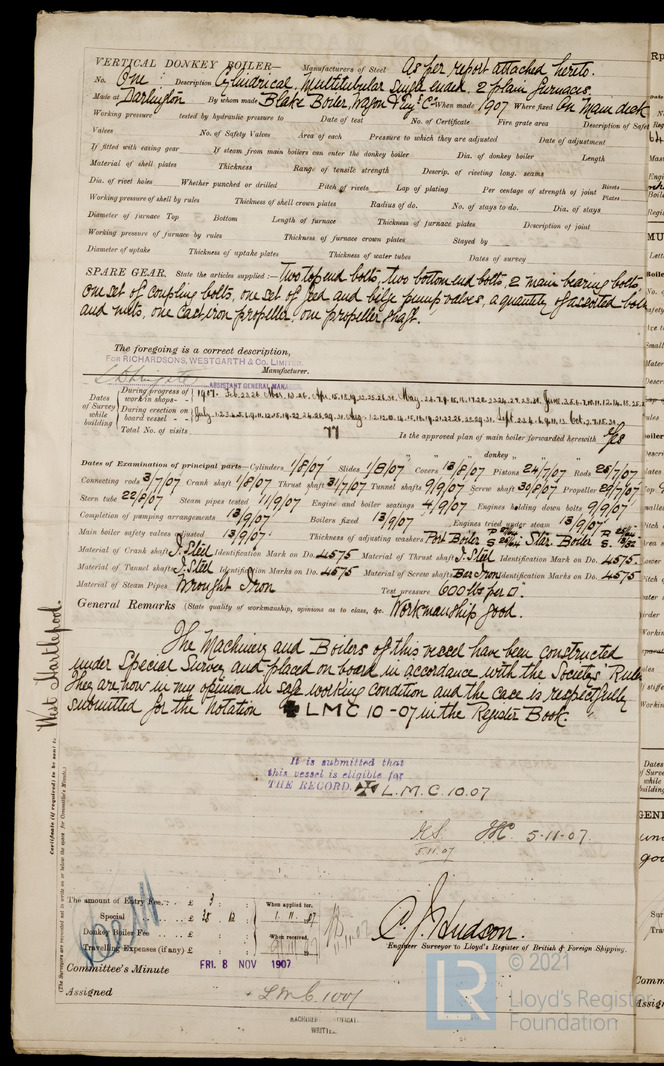 VERTICAL DONKEY BOILER— Manufacturers of Steel As per report attached hereto.
No. One Description Cylindrical, Multitubular Single ended, 2 plain furnaces.
Made at Darlington By whom made Blake Boiler, Wagon & Eng. Co. When made 1907 Where fixed On Main deck
Working pressure tested by hydraulic pressure to Date of test No. of Certificate Fire grate area Description of Safety
Valves No. of Safety Valves Area of each Pressure to which they are adjusted Date of adjustment
If fitted with easing gear If steam from main boilers can enter the donkey boiler Dia. of donkey boiler Length
Material of shell plates Thickness Range of tensile strength Descrip. of riveting long. seams
Dia. of rivet holes Whether punched or drilled Pitch of rivets Lap of plating Per centage of strength of joint Rivets Plates
Working pressure of shell by rules Thickness of shell crown plates Radius of do. No. of stays to do. Dia. of stays
Diameter of furnace Top Bottom Length of furnace Thickness of furnace plates Description of joint
Working pressure of furnace by rules Thickness of furnace crown plates Stayed by
Diameter of uptake Thickness of uptake plates Thickness of water tubes Dates of survey
SPARE GEAR. State the articles supplied:— Two top end bolts, two bottom end bolts, 2 main bearing bolts,
one set of coupling bolts, one set of feed and bilge pump valves, a quantity of assorted bolts
and nuts, one cast iron propeller, one propeller shaft.
The foregoing is a correct description,
FOR RICHARDSONS, WESTGARTH & Co. LIMITED.
Manufacturer.
ASSISTANT GENERAL MANAGER.
Dates of Survey while building
During progress of work in shops- - 1907. Feb.
During erection on board vessel - - -
Total No. of visits 77 Is the approved plan of main boiler forwarded herewith Yes
" " " donkey " " "
Dates of Examination of principal parts—Cylinders 1/8/07 Slides 1/8/07 Covers 13/8/07 Pistons 24/7/07 Rods 25/7/07
Connecting rods 3/7/07 Crank shaft 1/8/07 Thrust shaft 31/7/07 Tunnel shafts 9/9/07 Screw shaft 30/8/07 Propeller 29/7/07
Stern tube 22/8/07 Steam pipes tested 11/9/07 Engine and boiler seatings 4/9/07 Engines holding down bolts 9/9/07
Completion of pumping arrangements 13/9/07 Boilers fixed 13/9/07 Engines tried under steam 13/9/07
Main boiler safety valves adjusted 13/9/07 Thickness of adjusting washers Port Boiler Star. Boiler
Material of Crank shaft I. Steel Identification Mark on Do. 4575 Material of Thrust shaft I. Steel Identification Mark on Do. 4575
Material of Tunnel shafts I. Steel Identification Marks on Do. 4575 Material of Screw shafts Bar Iron Identification Marks on Do. 4575
Material of Steam Pipes Wrought Iron Test pressure 600 lbs per □.
General Remarks (State quality of workmanship, opinions as to class, &c. Workmanship good.
The Machinery and Boilers of this vessel have been constructed
under Special Survey and placed on board in accordance with the Societies' Rules
They are now in my opinion in safe working condition and the case is respectfully
submitted for the notation ✠ LMC 10-07 in the Register Book.
West Hartlepool.
Certificate (if required) to be sent to
(The Surveyors are requested not to write on or below the space for Committee's Minute.)
It is submitted that
this vessel is eligible for
THE RECORD. ✠ L.M.C. 10.07
5.11.07
5-11-07.
The amount of Entry Fee. . . £ 3 : : When applied for,
Special . . . . £ 38 : 12 : 1. 11. 07
Donkey Boiler Fee . . £ : : When received,
Travelling Expenses (if any) £ : :
C. J. Hudson.
Engineer Surveyor to Lloyd's Register of British & Foreign Shipping.
Committee's Minute FRI. 8 NOV 1907
Assigned + L.M.C. 10.07
MACHINERY CERTIFICATE
WRITTEN.
LR
© 2021
Lloyd's Register
Foundation